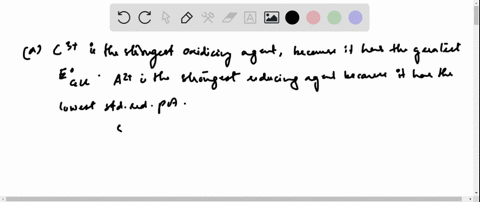 (a) C³⁺ is the strongest oxidizing agent, because it has the greatest
E°cell. A²⁺ is the strongest reducing agent because it has the
lowest std. red. pot.